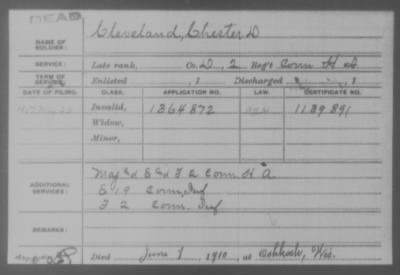 DEAD
NAME OF SOLDIER: Cleveland, Chester D
SERVICE: Late rank, Co. D, 2 Reg't Conn H A
TERM OF SERVICE: Enlisted , 1 Discharged , 1
DATE OF FILING. CLASS. APPLICATION NO. LAW. CERTIFICATE NO.
Invalid, 1364872 1139891
Widow,
Minor,
ADDITIONAL SERVICES: Maj &d F 2 Conn. H A
E 19 Conn. Inf
F 2 Conn. Inf
REMARKS:
Died June 7, 1910, at Oshkosh, Wis.